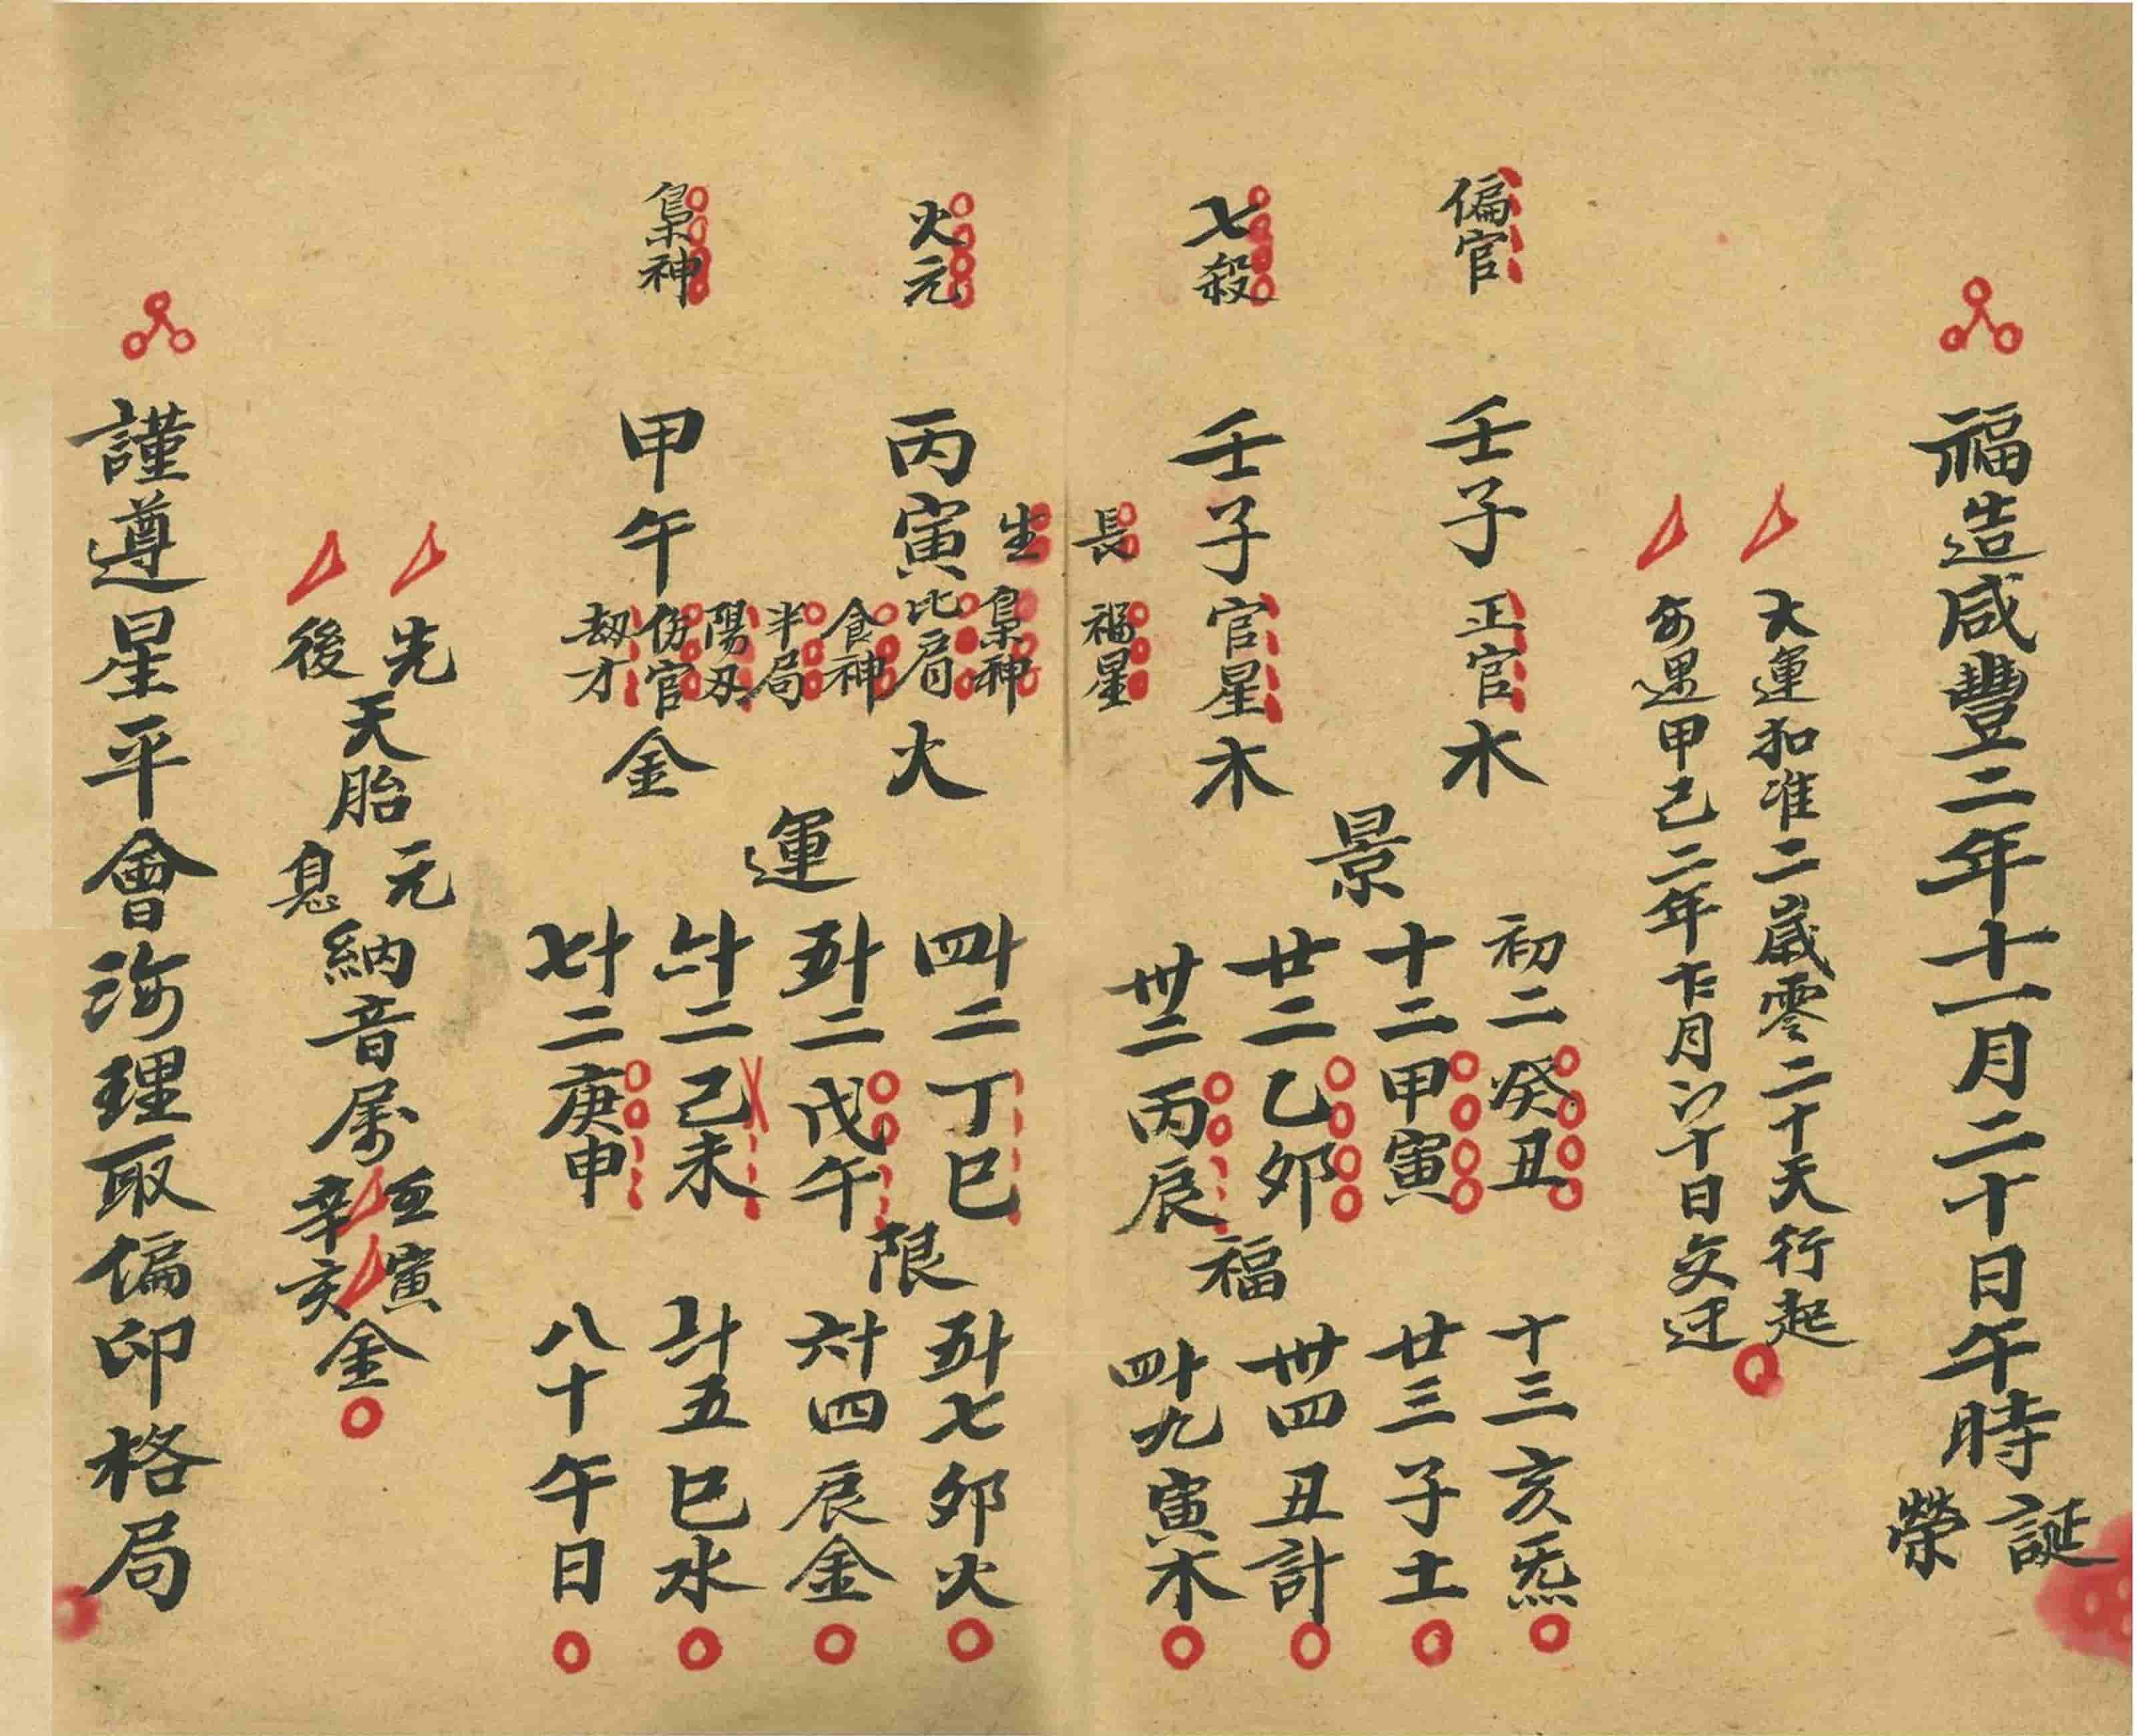 福造咸豐二年十一月二十日午時
誕榮
大運扣准二歲零二十天行起
每遇甲己二年十月六十日交迂
偏官
壬子
正官
木
七殺
壬子
官星
木
長生
福星
梟神
火元
丙寅
比肩
食神
火
梟神
甲午
半局
陽刃
伤官
劫才
金
景運
初二癸丑
十二甲寅
廿二乙卯
卅二丙辰
四十二丁巳
五十二戊午
六十二己未
七十二庚申
福限
十三亥炁
廿三子土
卅四丑計
四十九寅木
五十七卯火
六十四辰金
七十五巳水
八十午日
先後天胎元息納音属
寅
辛亥
金
謹遵星平會海理取偏印格局